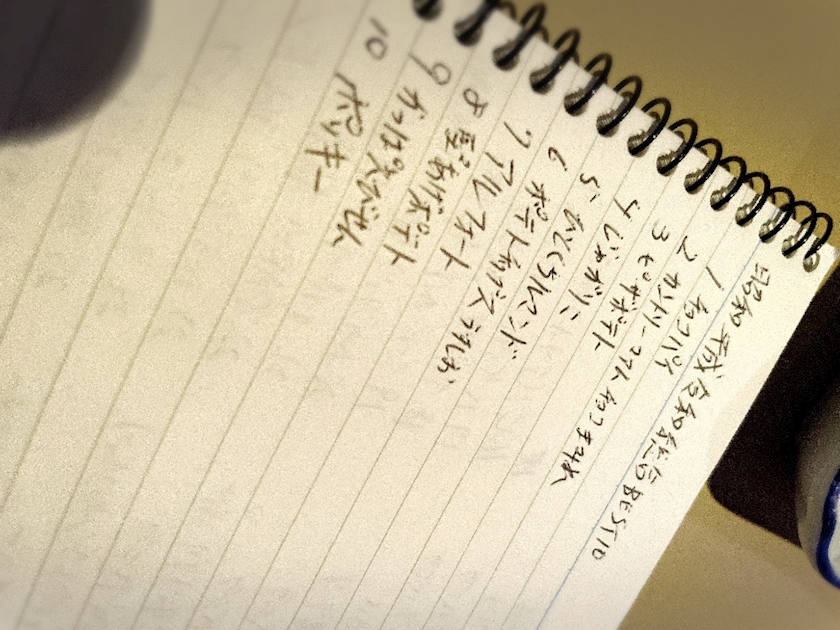 昭和 平成 令和 総合 BEST10
1 チョコパイ
2 カントリーマアム チョコまみれ
3 ピザポテト
4 じゃがりこ
5 ひとくちルマンド
6 ポテトチップス うすしお
7 アルフォート
8 堅あげポテト
9 かっぱえびせん
10 ポッキー